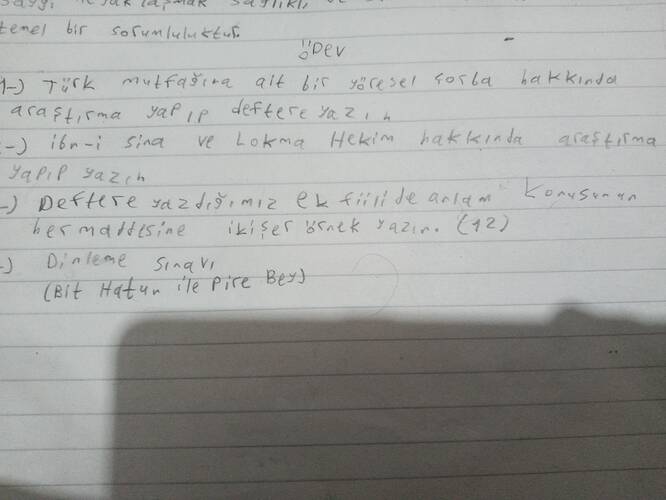 temel bir sorumluluktur.
ÖDev
1-) Türk mutfağına ait bir yöresel çorba hakkında
araştırma yapıp deftere yazın
-) ibn-i Sina ve Lokma Hekim hakkında araştırma
yapıp yazın
-) Deftere yazdığımız ek fiilide anlam konusunun
her maddesine ikişer örnek yazın. (12)
-) Dinleme sınavı
(Bit Hatun ile Pire Bey)